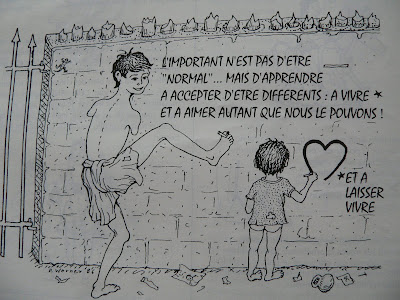 L'IMPORTANT N'EST PAS D'ETRE
"NORMAL"... MAIS D'APPRENDRE
A ACCEPTER D'ETRE DIFFERENTS : A VIVRE *
ET A AIMER AUTANT QUE NOUS LE POUVONS !
* ET A
LAISSER
VIVRE